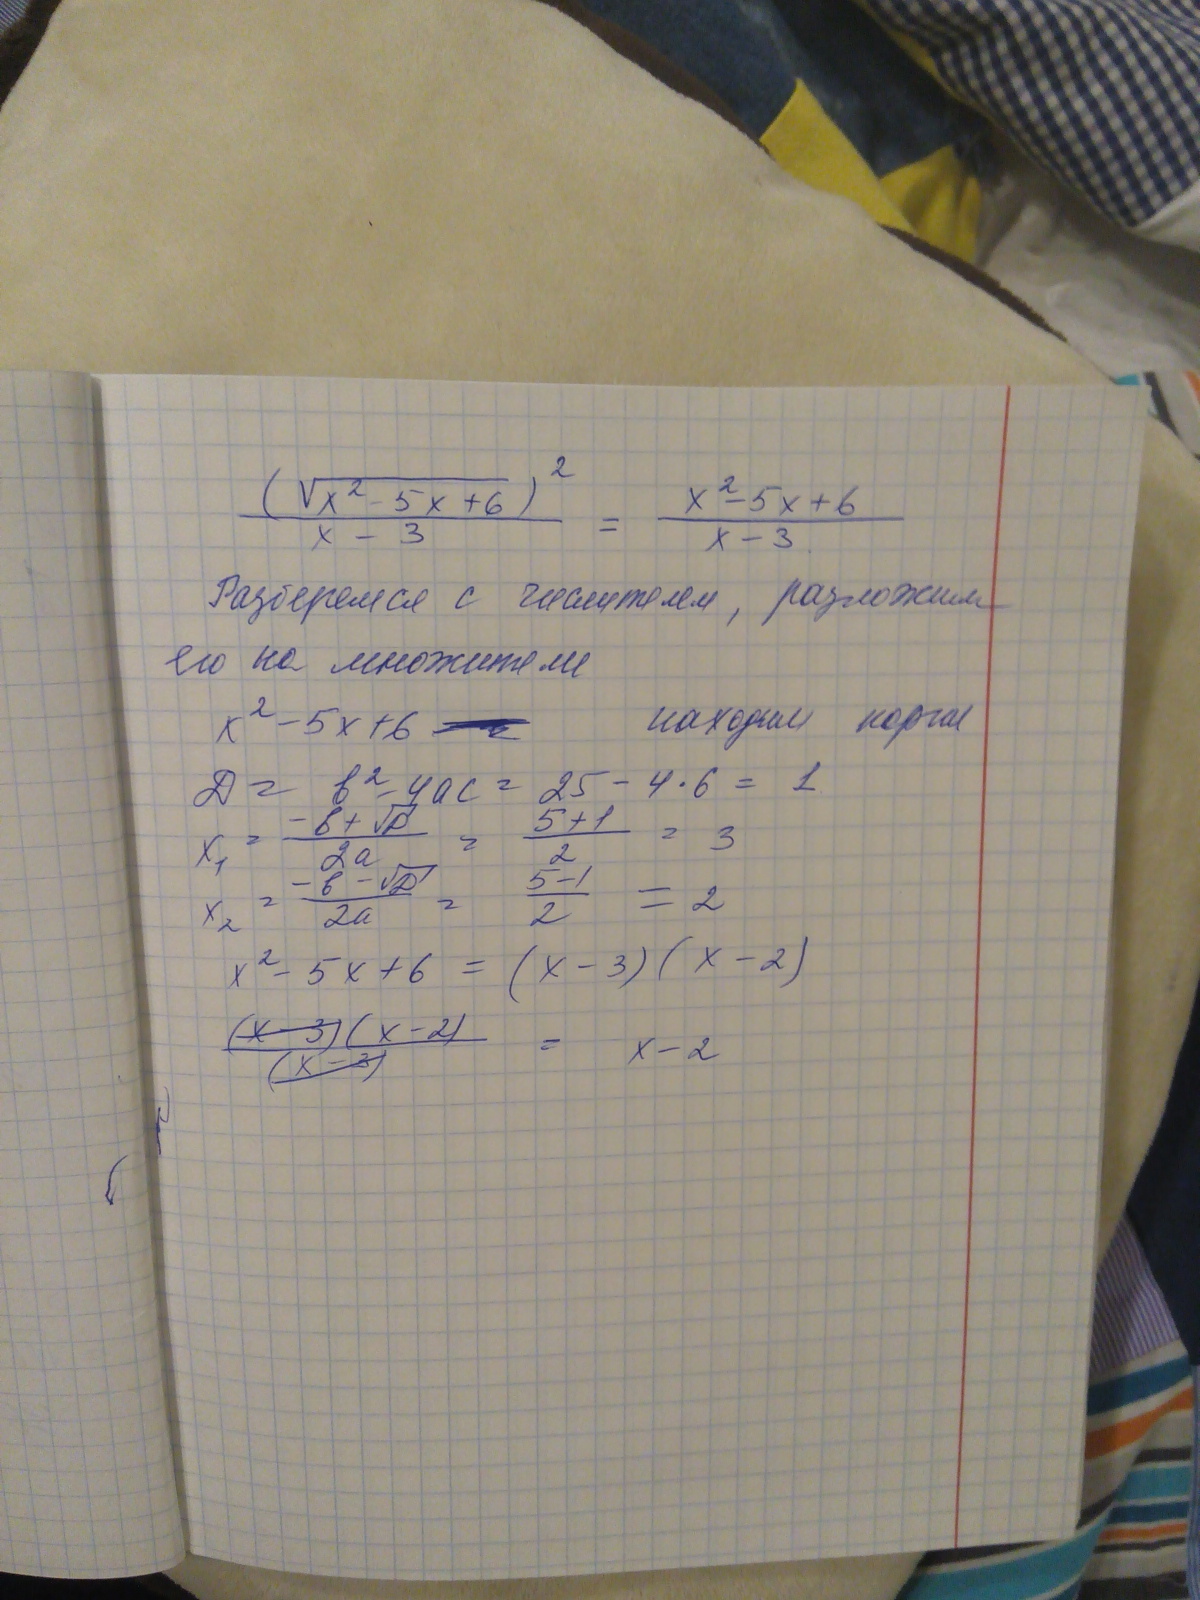 (√x² - 5x + 6)² / x - 3 = x² - 5x + 6 / x - 3
Разберемся с числителем, разложим
его на множители
x² - 5x + 6 находим корни
D = b² - 4ac = 25 - 4 · 6 = 1
x₁ = -b + √D / 2a = 5 + 1 / 2 = 3
x₂ = -b - √D / 2a = 5 - 1 / 2 = 2
x² - 5x + 6 = (x - 3)(x - 2)
(x - 3)(x - 2) / (x - 3) = x - 2